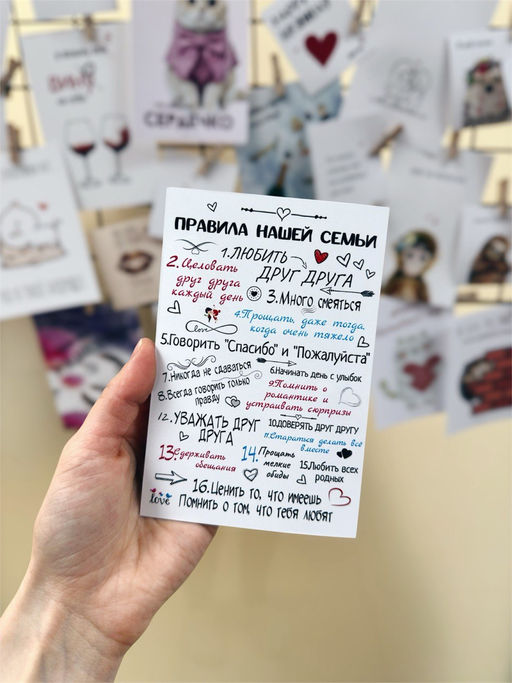 СЕРДЕЧКО
ПРАВИЛА НАШЕЙ СЕМЬИ
1.ЛЮБИТЬ
ДРУГ ДРУГА
2.Целовать
друг друга
каждый день
3.Много смеяться
4.Прощать, даже тогда,
когда очень тяжело
love
5.Говорить "Спасибо" и "Пожалуйста"
7.Никогда не сдаваться
6.Начинать день с улыбок
8.Всегда говорить только
правду
9.Помнить о
романтике и
устраивать сюрпризы
12.УВАЖАТЬ ДРУГ
ДРУГА
10.ДОВЕРЯТЬ ДРУГ ДРУГУ
11.Стараться делать все
вместе
13.Сдерживать
обещания
14.Прощать
мелкие
обиды
15.Любить всех
родных
16.Ценить то, что имеешь
love
Помнить о том, что тебя любят